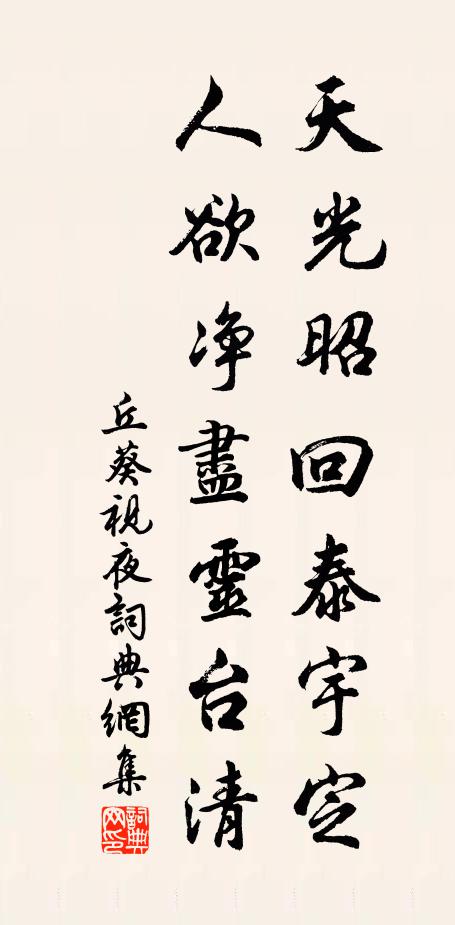 天光昭回泰宇定
人欲净盡靈台清
丘葵祝夜詞典網集
詞典
网印